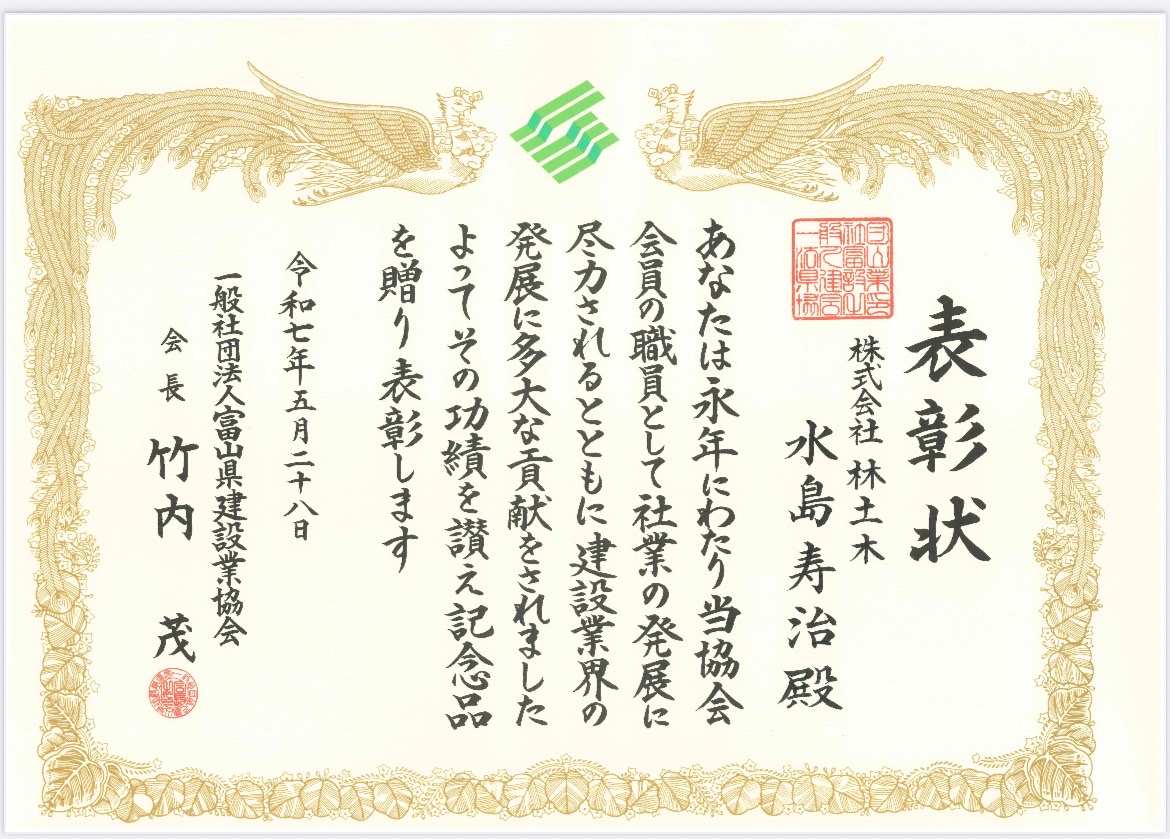 表彰状
株式会社 林土木
水島寿治殿
あなたは永年にわたり当協会
会員の職員として社業の発展に
尽力されるとともに建設業界の
発展に多大な貢献をされました
よってその功績を讃え記念品
を贈り表彰します
令和七年五月二十八日
一般社団法人富山県建設業協会
会長 竹内 茂